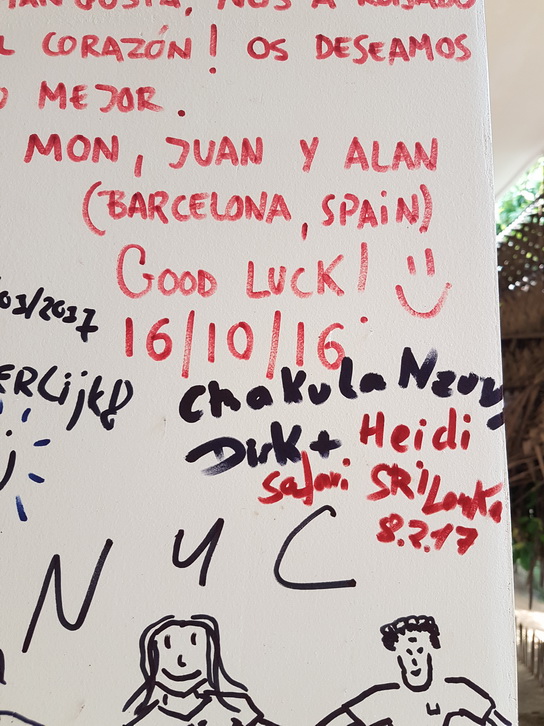 NOS A ROBADO
L CORAZÓN! OS DESEAMOS
O MEJOR.
MON, JUAN Y ALAN
(BARCELONA, SPAIN)
GOOD LUCK!
16/10/16
03/2037
ERLijk
Chakula Nzuri
Dirk + Heidi
Safari SRi Lanka
8.2.17
NYC